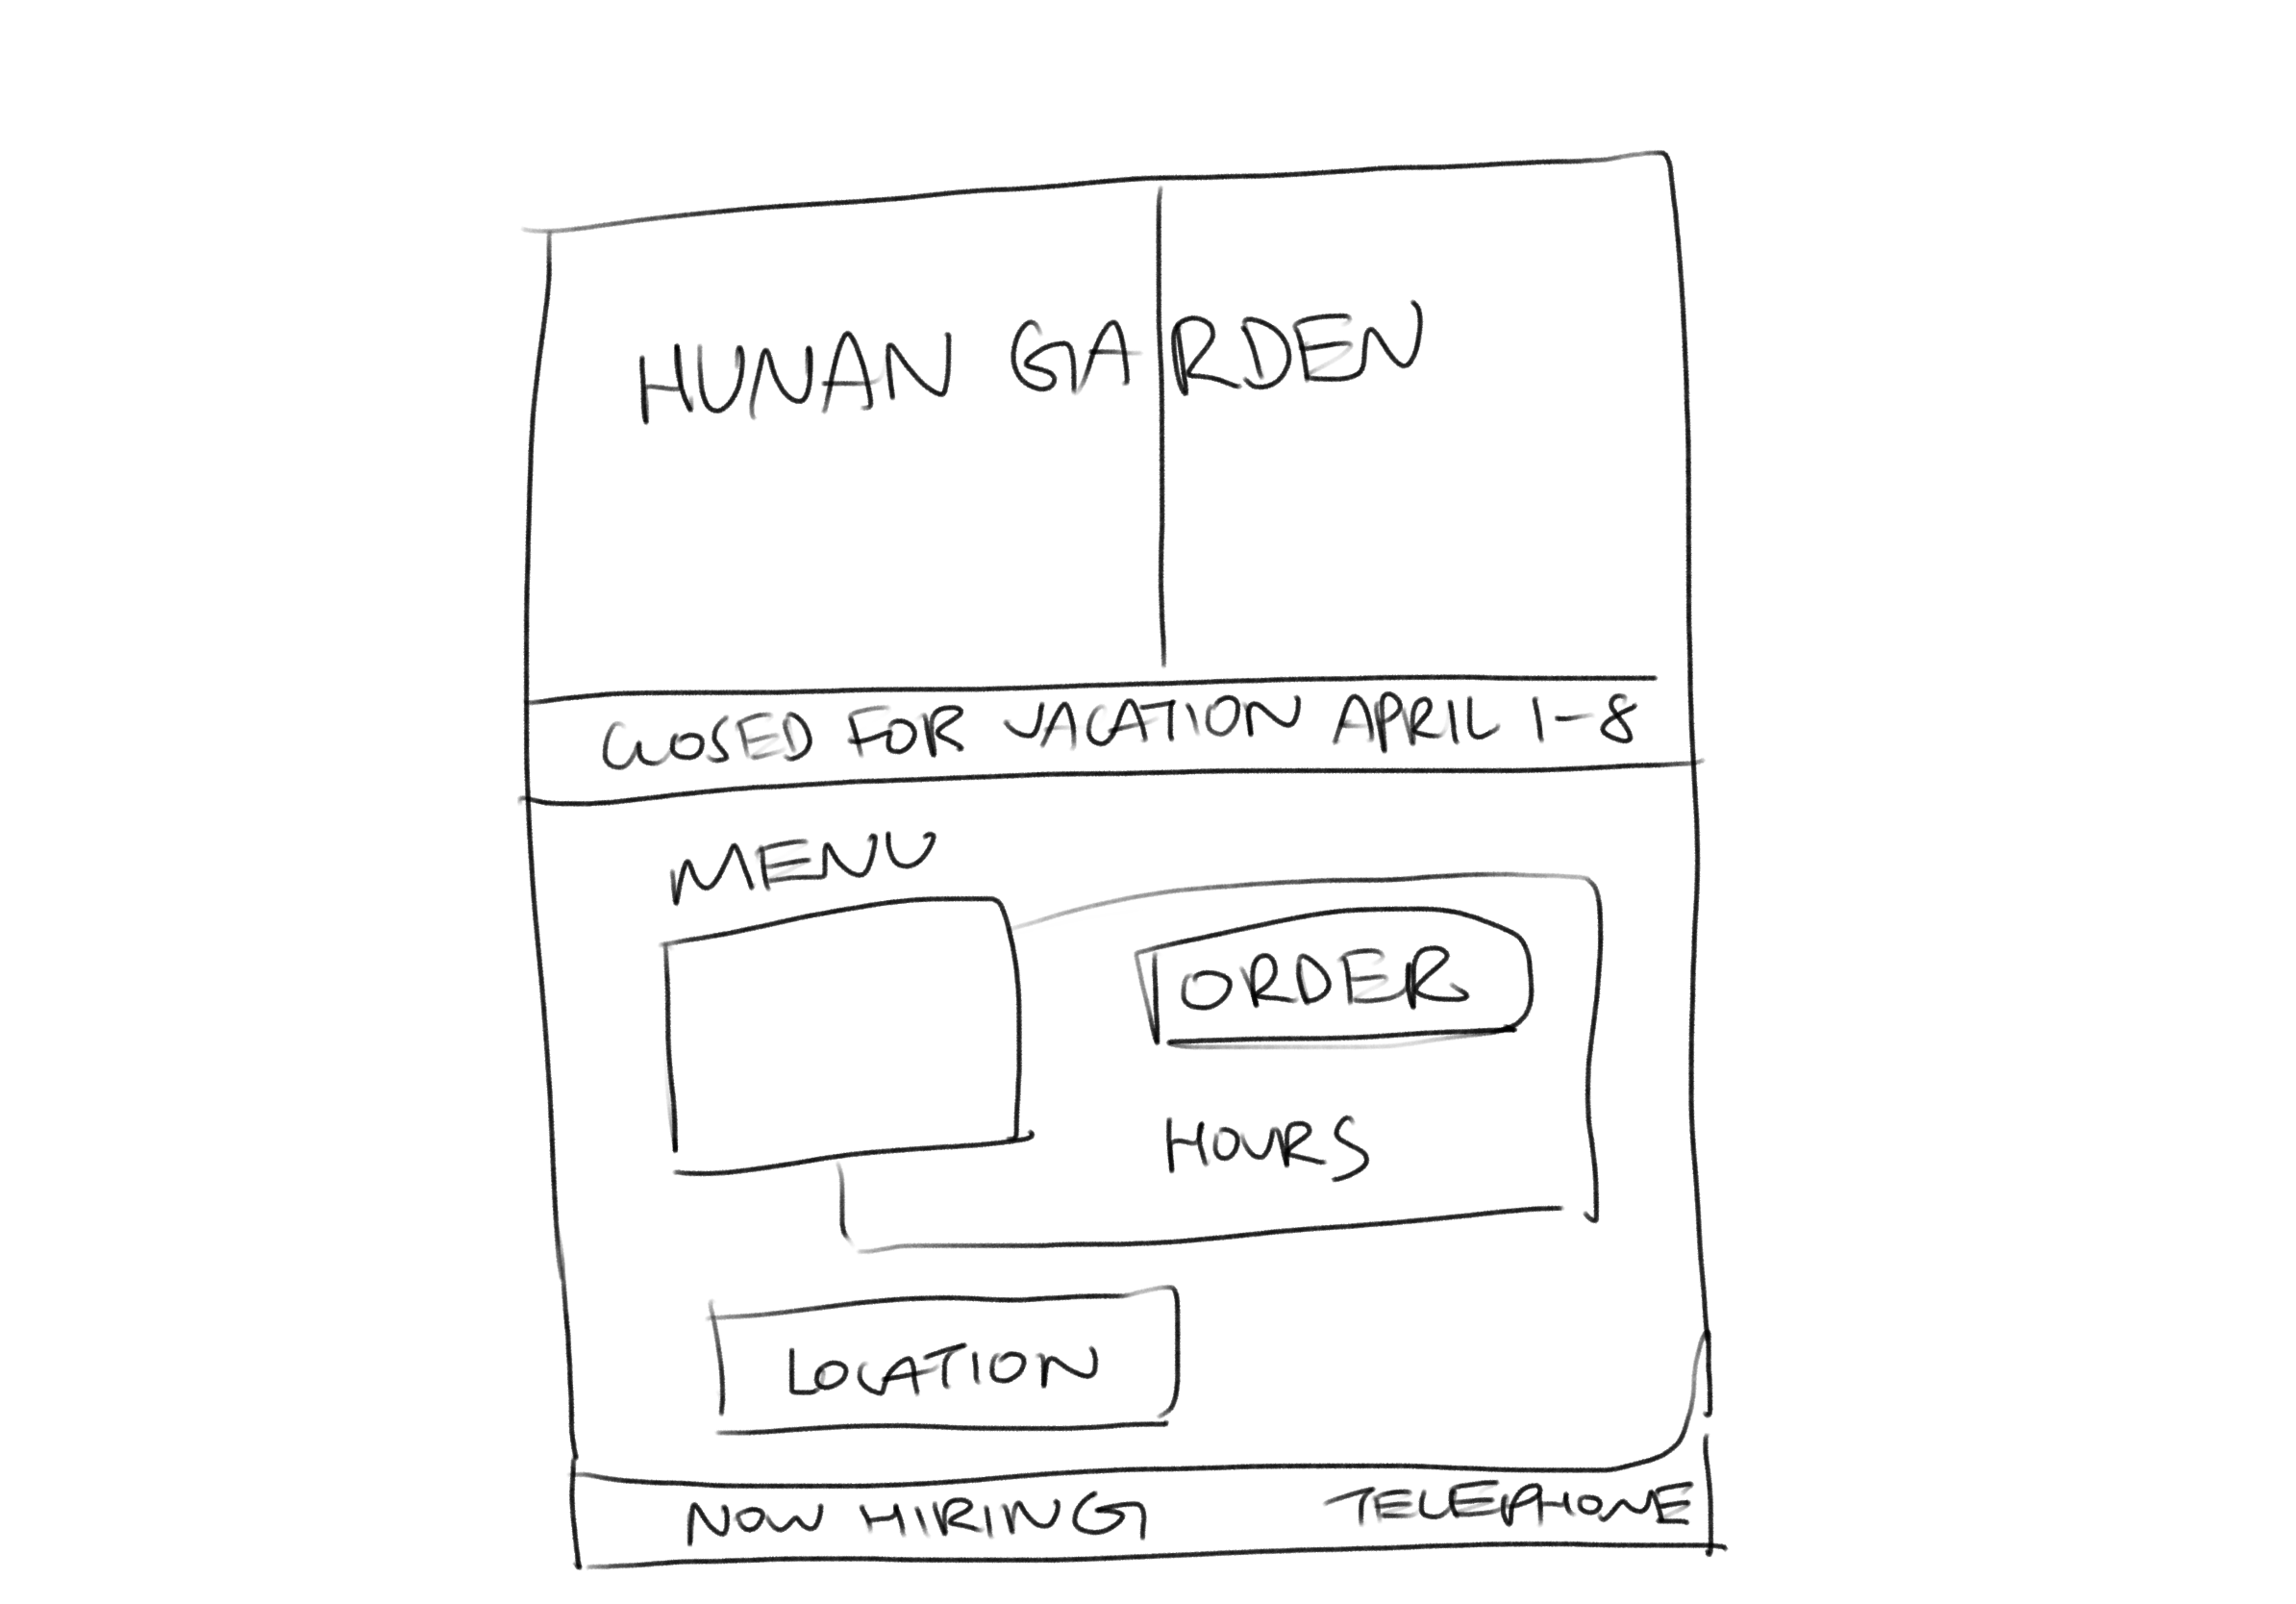 HUNAN GARDEN
CLOSED FOR VACATION APRIL 1-8
MENU
ORDER
HOURS
LOCATION
NOW HIRING TELEPHONE